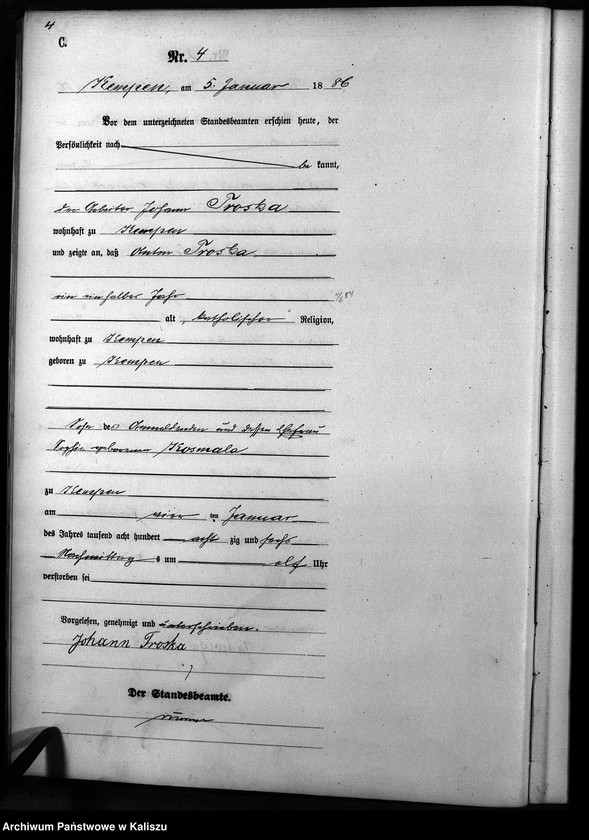 4
C.
Nr. 4
Kempen, am 5. Januar 1886
Vor dem unterzeichneten Standesbeamten erschien heute, der
Persönlichkeit nach
be kannt,
der Arbeiter Johann Troska
wohnhaft zu Kempen
und zeigte an, daß Anton Troska
ein einhalbes Jahr
alt, katholischer Religion,
wohnhaft zu Kempen
geboren zu Kempen
Sohn des Anmeldenden und dessen Ehefrau
Sophie geborenen Kosmala
zu Kempen
am vier ten Januar
des Jahres tausend acht hundert acht zig und sechs
Nachmittag s um elf Uhr
verstorben sei
Vorgelesen, genehmigt und unterschrieben.
Johann Troska
Der Standesbeamte.
Archiwum Państwowe w Kaliszu